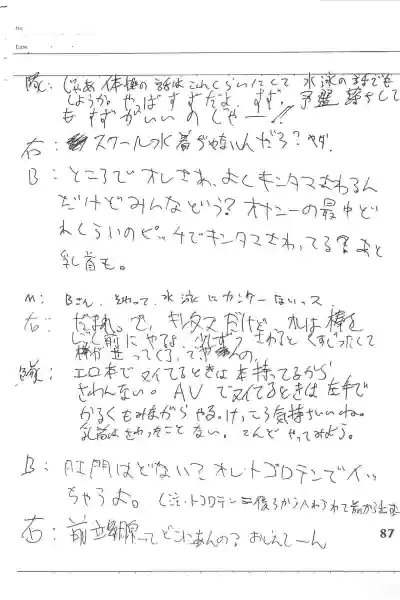 じゃあ体操の話はこれくらいにして水泳の話でも
しようか。やっぱすずだよ、すず。
もすずがいいのじゃー!!
右: スクール水着じゃないんだろ?ヤダ。
B: ところでオレさあ、よくキンタマさわるん
だけどみんなどう?オナニーの最中ど
れくらいのピッチでキンタマさわってる?あと
乳首も。
M: Bさん、それって、水泳にカンケーないっス
右: だまれ。で、キンタマだけど、オレは棒を
前にやるな。さわるとくすぐったくて
エロ本でヌイてるときは本持ってるから
さわんない。AVでヌイてるときは左手で
かるくもみながらやる。けっこう気持ちいいね。
乳首はさわったことない。こんどやってみよう。
B: 肛門はどない?オレ、トコロテンでイッ
ちゃうよ。(注・トコロテン=後ろから入れられて前から出
右: 前立腺ってどこにあんの?おしえてーん
87